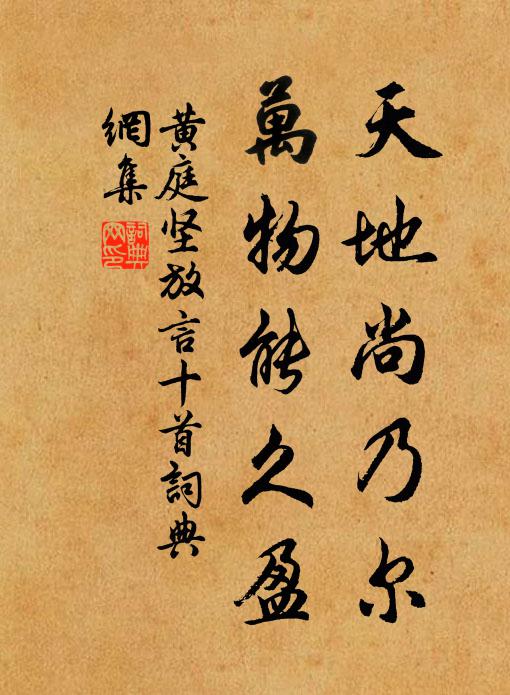 天地尚乃尔
萬物能久盈
黄庭坚放言十首詞典
網集
詞典
网印